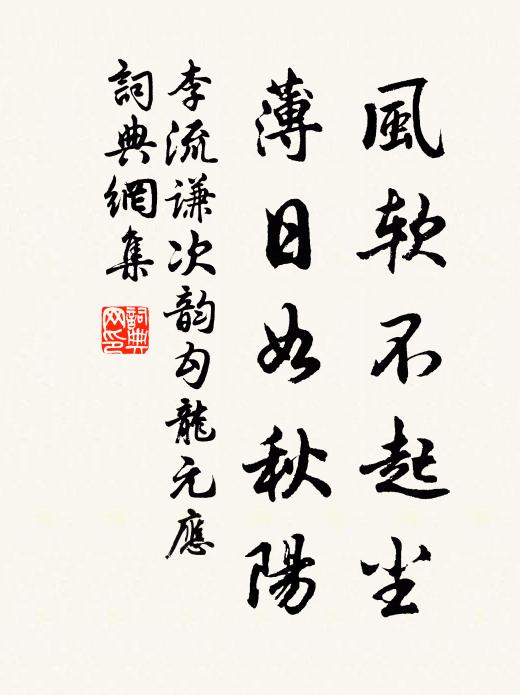 風軟不起尘
薄日如秋陽
李流謙次韵勾龍元應
詞典網集
詞典网印